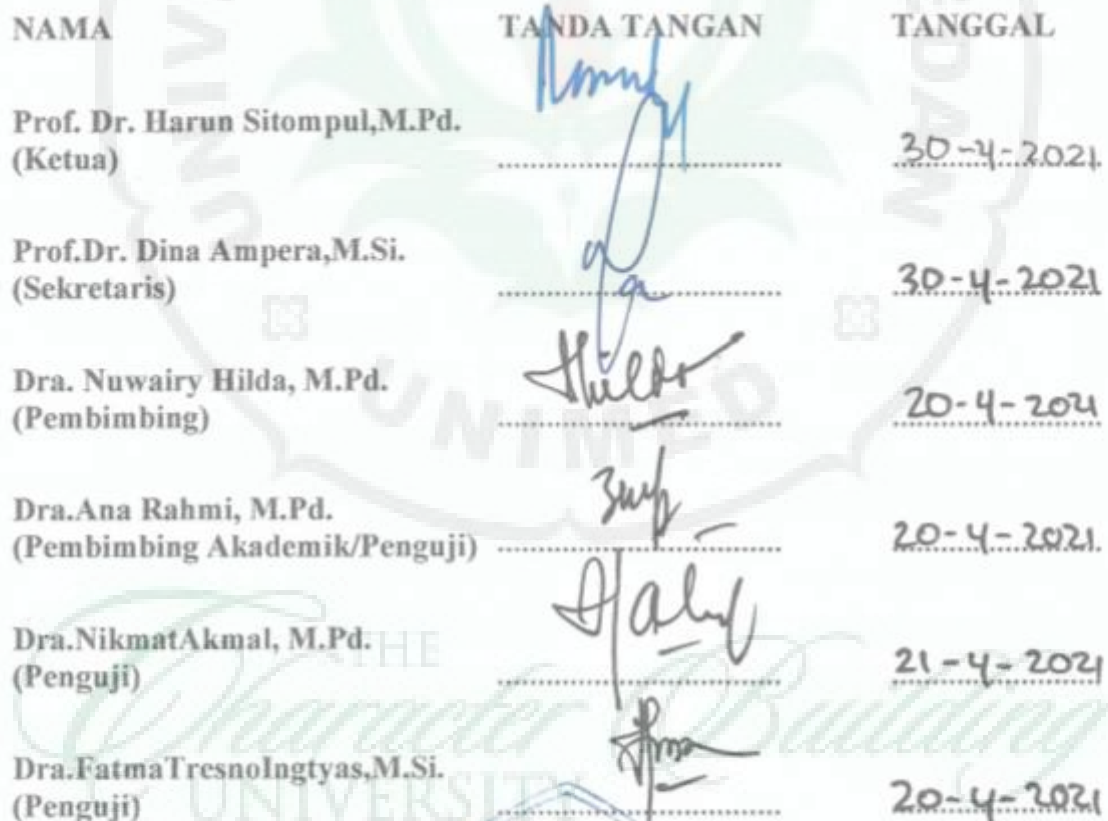 NAMA TANDA TANGAN TANGGAL
Prof. Dr. Harun Sitompul,M.Pd.
(Ketua) 30-4-2021
Prof.Dr. Dina Ampera,M.Si.
(Sekretaris) 30-4-2021
Dra. Nuwairy Hilda, M.Pd.
(Pembimbing) 20-4-2021
Dra.Ana Rahmi, M.Pd.
(Pembimbing Akademik/Penguji) 20-4-2021
Dra.NikmatAkmal, M.Pd.
(Penguji) 21-4-2021
Dra.FatmaTresnoIngtyas,M.Si.
(Penguji) 20-4-2021
UNIMED
THE
Character Building
UNIVERSITY